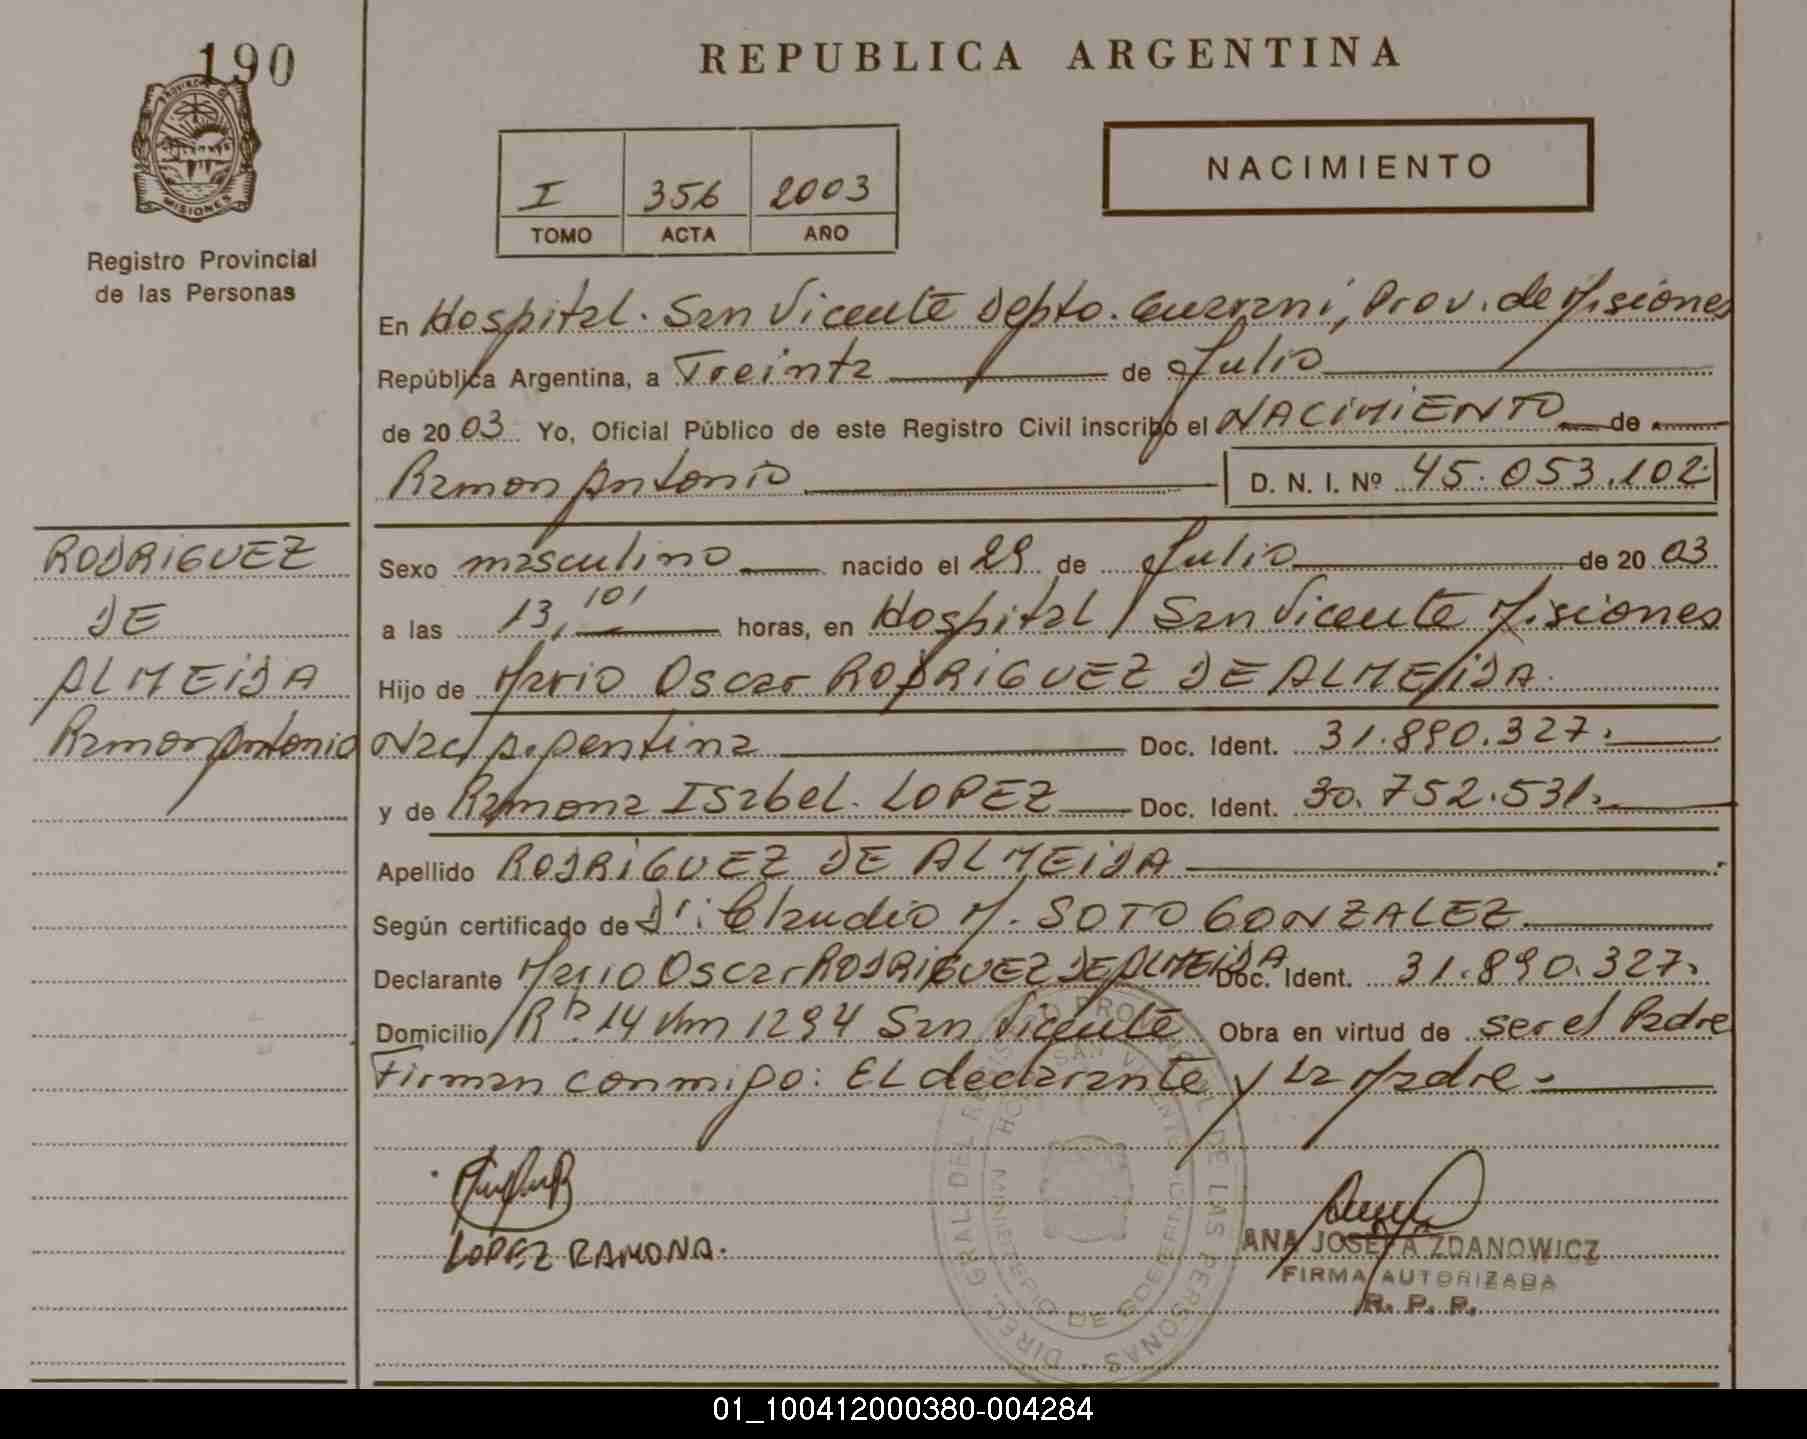 190
REPUBLICA ARGENTINA
PROVINCIA DE
MISIONES
Registro Provincial
de las Personas
NACIMIENTO
I 356 2003
TOMO ACTA AÑO
En Hospital. San Vicente Depto. Guarani, Prov. de Misiones
República Argentina, a Treinta de Julio
de 2003 Yo, Oficial Público de este Registro Civil inscribo el NACIMIENTO de
Ramon Antonio D. N. I. Nº 45.053.102
RODRIGUEZ
DE
ALMEIDA
Ramon Antonio
Sexo masculino nacido el 29 de Julio de 2003
a las 13,101 horas, en Hospital / San Vicente Misiones
Hijo de Mario Oscar RODRIGUEZ DE ALMEIDA.
Nac/ Argentina Doc. Ident. 31.890.327.
y de Ramona Isabel. LOPEZ Doc. Ident. 30.752.531.
Apellido RODRIGUEZ DE ALMEIDA
Según certificado de Dr: Claudio M. SOTO GONZALEZ.
Declarante Mario Oscar RODRIGUEZ DE ALMEIDA Doc. Ident. 31.890.327.
Domicilio Rta 14 Km 1294 San Vicente Obra en virtud de ser el Padre
Firman conmigo: EL declarante y La Madre.
LOPEZ RAMONA.
ANA JOSEFA ZDANOWICZ
FIRMA AUTORIZADA
R. P. P.
DIREC. GRAL. DEL REGISTRO PROVINCIAL DE LAS PERSONAS
MINISTERIO DE GOBIERNO
01_100412000380-004284